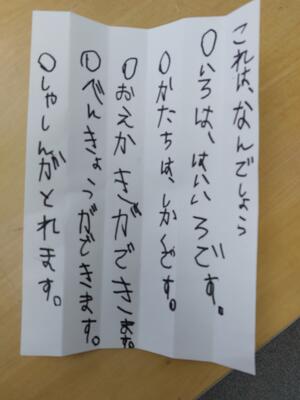 これは、なんでしょう
○いろは、はいいろです。
○かたちは、しかくです。
○おえかきができます。
○べんきょうができます。
○しゃしんがとれます。